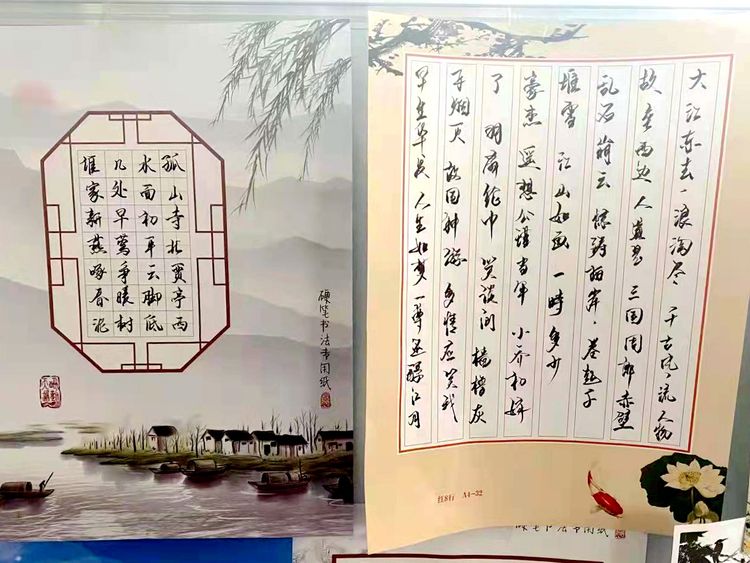 孤山寺北贾亭西
水面初平云脚低
几处早莺争暖树
谁家新燕啄春泥
硬笔书法专用纸
大江东去，浪淘尽，千古风，流人物
故垒西边 人道是 三国周郎赤壁
乱石崩云 惊涛拍岸，卷起千
堆雪 江山如画 一时多少
豪杰 遥想公瑾当年 小乔初嫁
了 羽扇纶巾 笑谈间 樯橹灰
飞烟灭 故国神游 多情应笑我
早生华发 人生如梦 一尊还酹江月
红8行 A4-32
硬笔书法专用纸